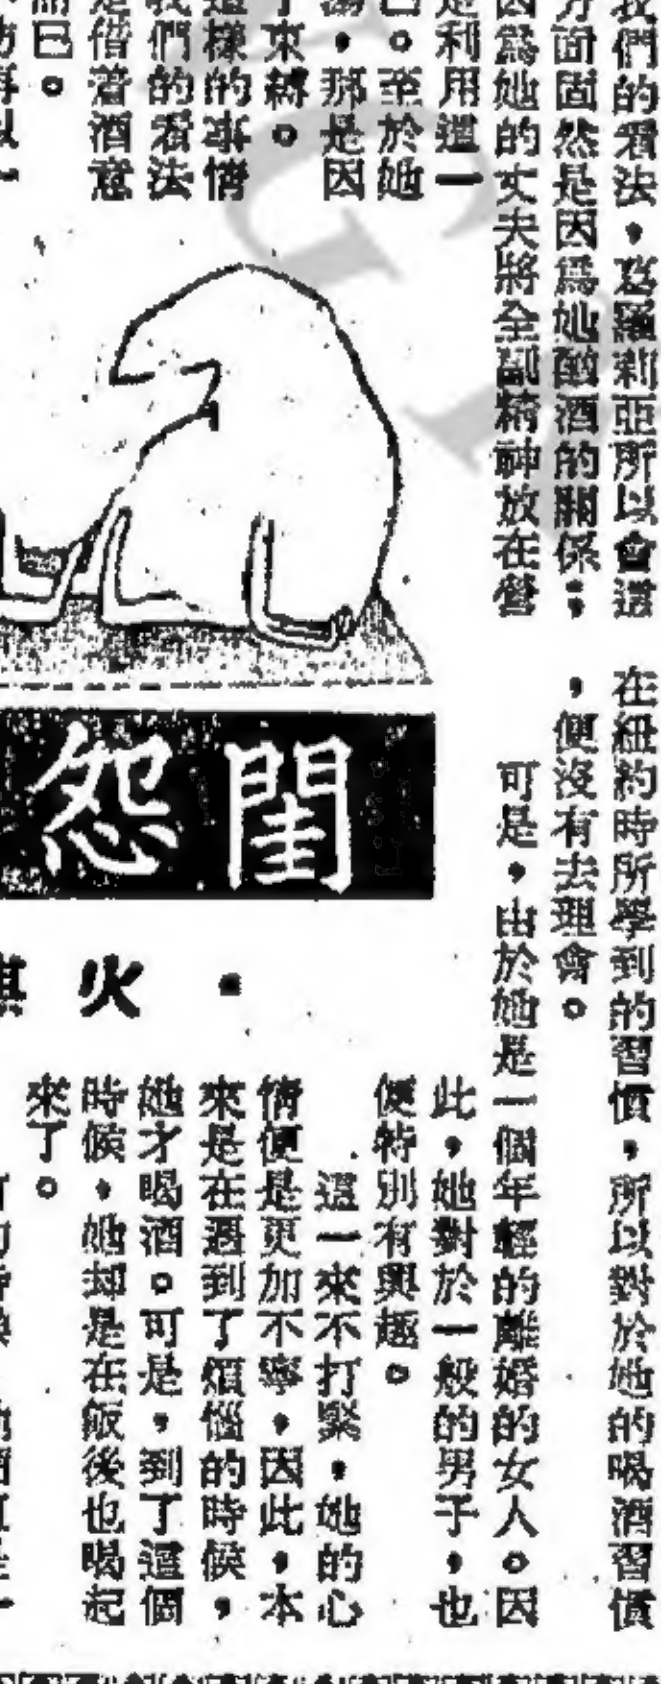 我們的看法，葛羅莉亞所以會這
方面固然是因爲她酗酒的關係；
因爲她的丈夫將全副精神放在營
是利用這一
己。至於她
湯，那是因
了束縛。
這樣的事情
我們的看法
是借着酒意
而已。
閨怨
在紐約時所學到的習慣，所以對於她的喝酒習慣
，便沒有去理會。
可是，由於她是一個年輕的離婚的女人。因
此，她對於一般的男子，也
便特別有興趣。
這一來不打緊，她的心
情便是更加不寧，因此，本
來是在遇到了煩惱的時候，
她才喝酒。可是，到了這個
時候，她却是在飯後也喝起
來了。
•火